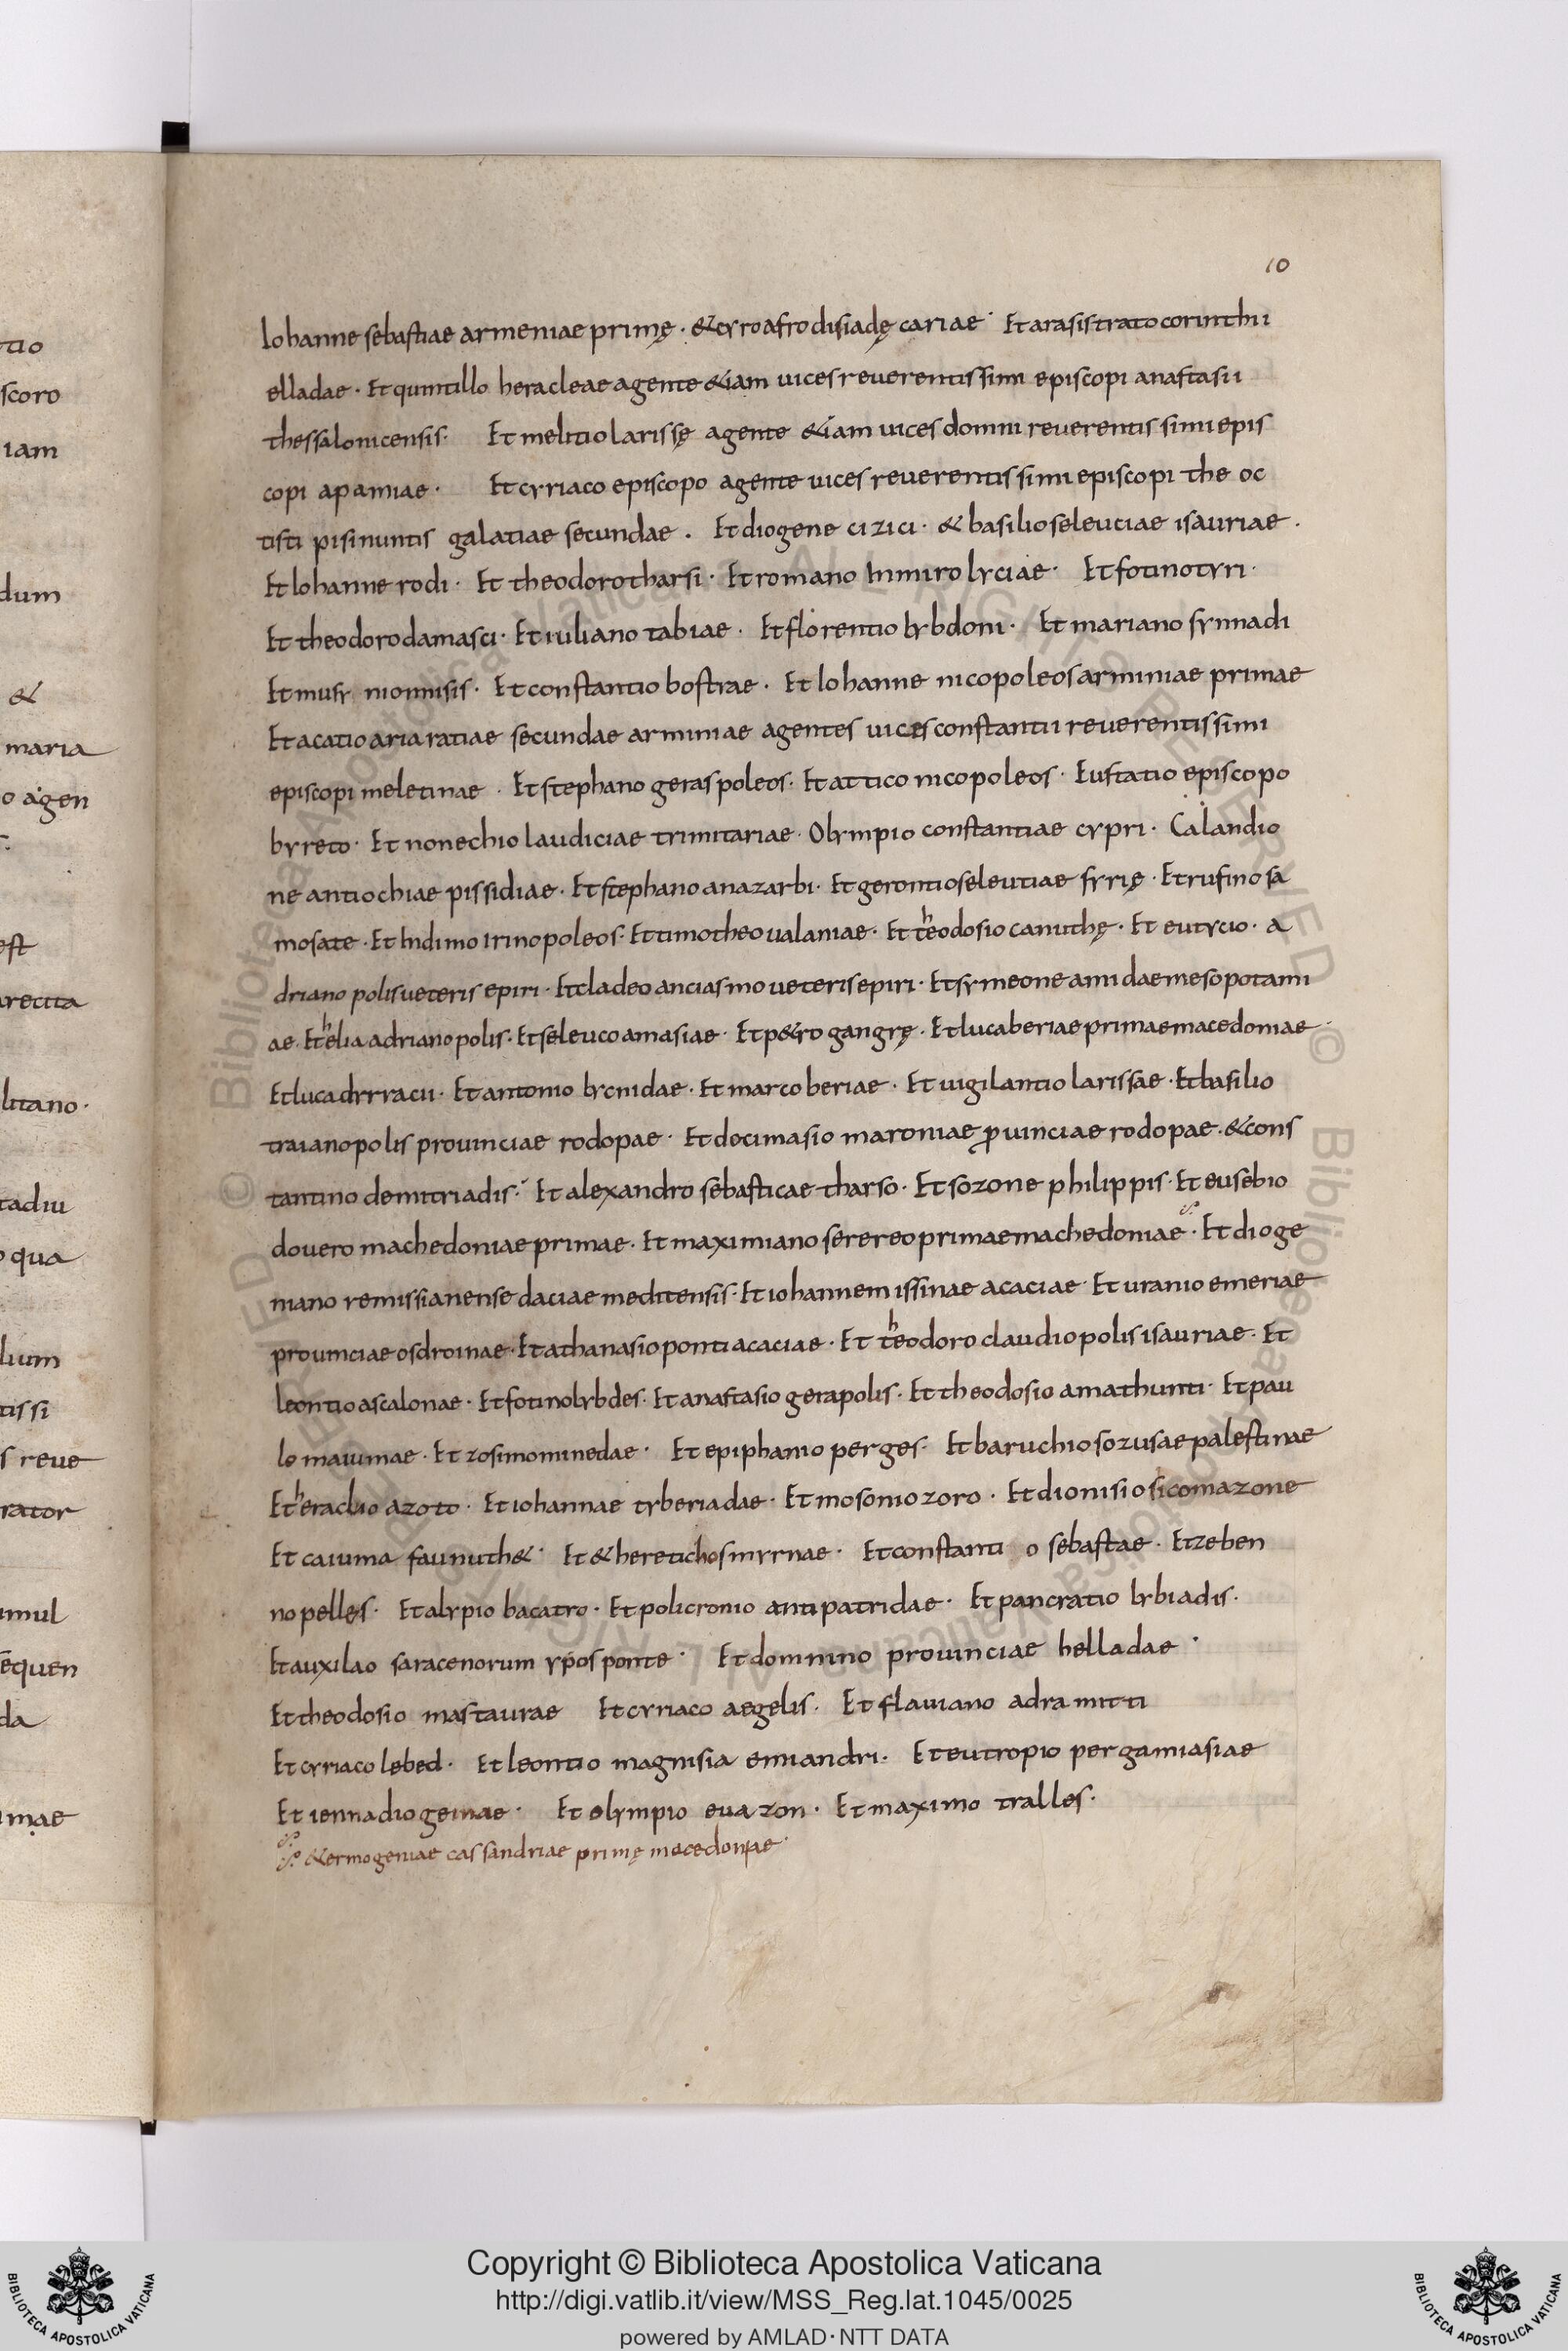 10
Iohanne sebastiae armeniae primę · & cyro afrodisiadę cariae · Et arasistrato corinthii
elladae · Et quintillo heracleae agente &iam uices reuerentissimi episcopi anastasii
thessalonicensis · Et melitio larissę agente &iam uices domni reuerentissimi epis
copi apamiae · Et cyriaco episcopo agente uices reuerentissimi episcopi the oc
tisti pisinuntis galatiae secundae . Et diogene cizici · & basilio seleuciae isauriae .
Et Iohanne rodi · Et theodoro tharsi · Et romano Inmiro lyciae · Et fotino tyri ·
Et theodoro damasci · Et iuliano tabiae · Et florentio lybdoni · Et mariano synnadi
Et musy nionnisis · Et constantio bostrae · Et Iohanne nicopoleos arminiae primae
Et acatio aria ratiae secundae arminiae agentes uices constantii reuerentissimi
episcopi meletinae · Et stephano geraspoleos · Et attico nicopoleos · Eustatio episcopo
byreto · Et nonechio laudiciae trimitariae · Olympio constantiae cypri · Calandio
ne antiochiae pissidiae · Et stephano anazarbi · Et gerontio seleutiae syrię · Et rufino sa
mosate · Et Indimo irinopoleos · Et timotheo ualaniae · Et theodosio canuthę · Et eutycio · a
driano polis ueteris epiri · Et cladeo anciasmo ueteris epiri · Et symeone amidae mesopotami
ae · Et helia adrianopolis · Et seleuco amasiae · Et p&ro gangrę · Et luca beriae primae macedoniae ·
Et luca dyrracii · Et antonio lycnidae · Et marco beriae · Et uigilantio larissae · Et basilio
traianopolis prouinciae rodopae · Et docimasio maroniae puinciae rodopae . & cons
tantino demitriadis · Et alexandro sebasticae tharso · Et sozone philippis · Et eusebio
douero machedoniae primae · Et maximiano serereo primae machedoniae · Et dioge
niano remissianense daciae meditensis · Et iohannem issinae acaciae · Et uranio emeriae
prouinciae osdroinae · Et athanasio ponti acaciae · Et theodoro claudiopolis isauriae · Et
leontio ascalonae · Et fotino lybdes · Et anastasio gerapolis · Et theodosio amathunti · Et pau
lo maiumae · Et zosimo minedae · Et epiphanio perges · Et baruchio sozusae palestinae
Et heraclio azoto · Et iohannae tyberiadae · Et mosonio zoro · Et dionisio sicomazone
Et caiuma faunuth& · Et &heretichosmyrnae · Et constanti o sebastae · Et zeben
no pelles · Et alypio bacatro · Et policronio antipatridae · Et pancratio lybiadis ·
Et auxilao saracenorum yposponte · Et domnino prouinciae helladae ·
Et theodosio mastaurae Et cyriaco aegelis · Et flauiano adramitti
Et cyriaco lebed · Et leontio magnisia emiandri · Et eutropio pergami asiae
Et iennadio geinae · Et olympio euazon · Et maximo tralles ·
&ermogeniae cassandriae primę macedoniae ·
Copyright © Biblioteca Apostolica Vaticana
http://digi.vatlib.it/view/MSS_Reg.lat.1045/0025
powered by AMLAD·NTT DATA